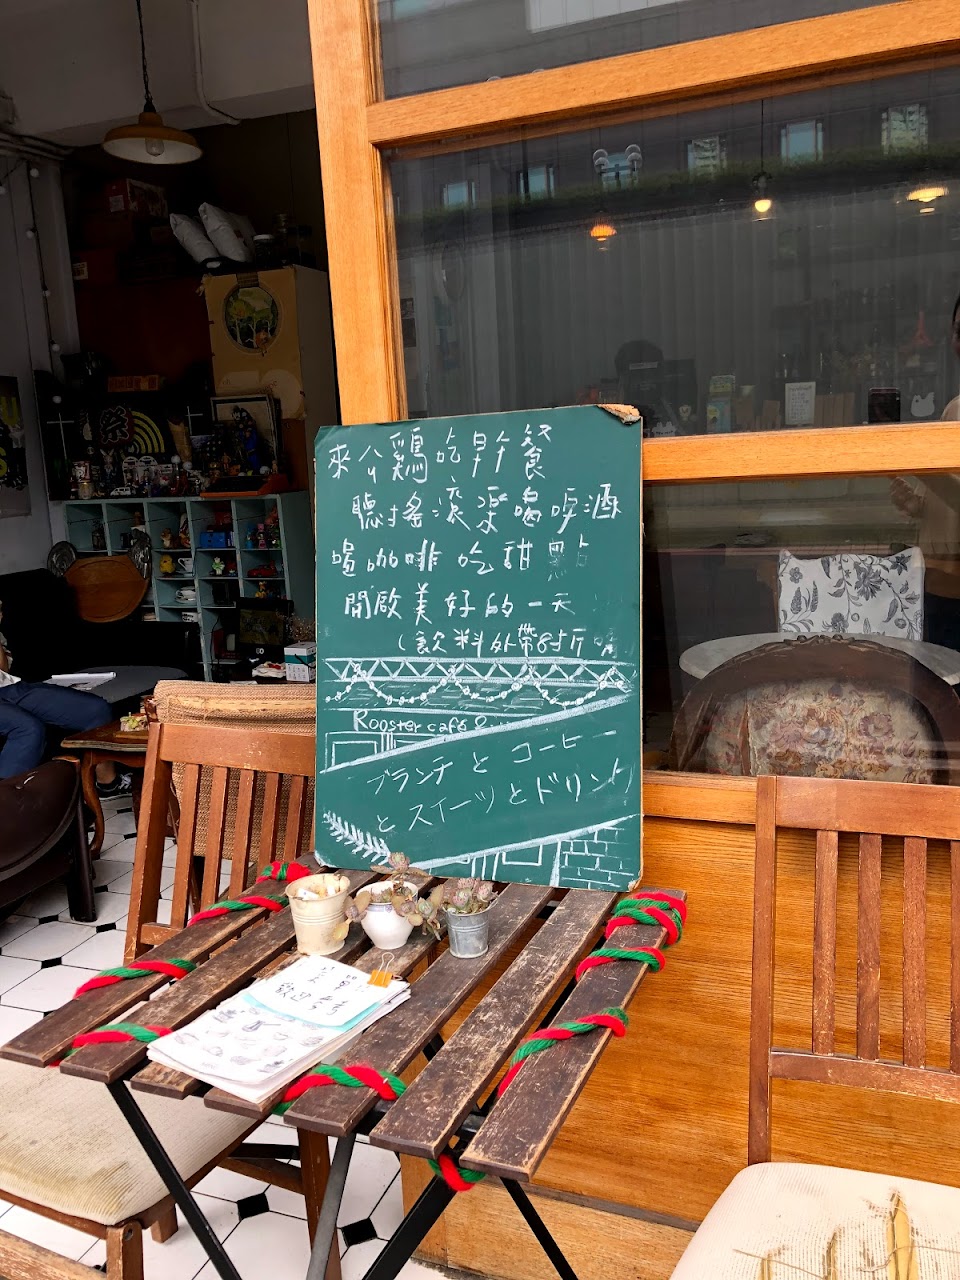 來公雞吃早午餐
聽搖滾樂喝啤酒
喝咖啡吃甜點
開啟美好的一天
(飲料外帶85折
Rooster café &
ブランチとコーヒー
とスイーツとドリンク
歡迎
祭